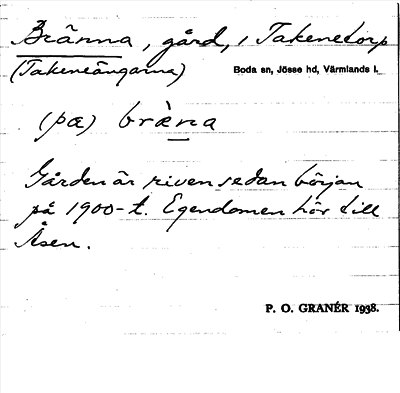 Bränna, gård, i Takenetorp
(Takeneängarna) Boda sn, Jösse hd, Värmlands l.
(pæ) brὰna
Gården är riven sedan början
på 1900-t. Egendomen hör till
Åsen.
P. O. GRANÉR 1938.